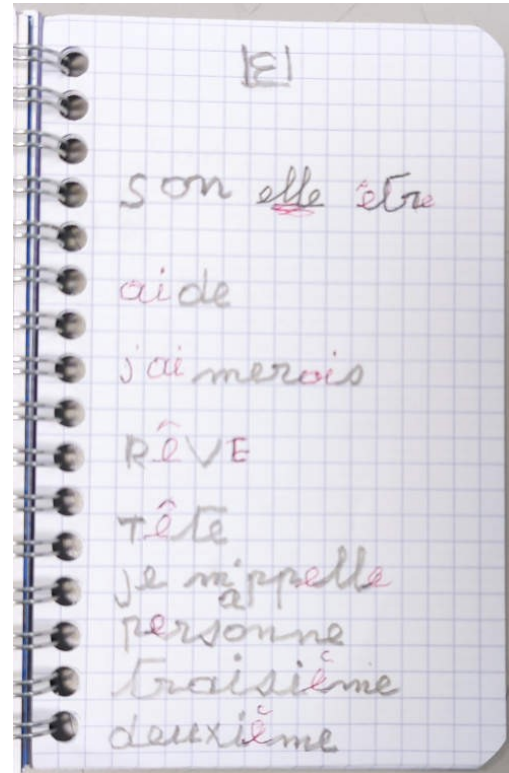 |ε|
son elle être
aide
j'aimerais
RêVE
Tête
je m'appelle
personne
traisième
deuxième